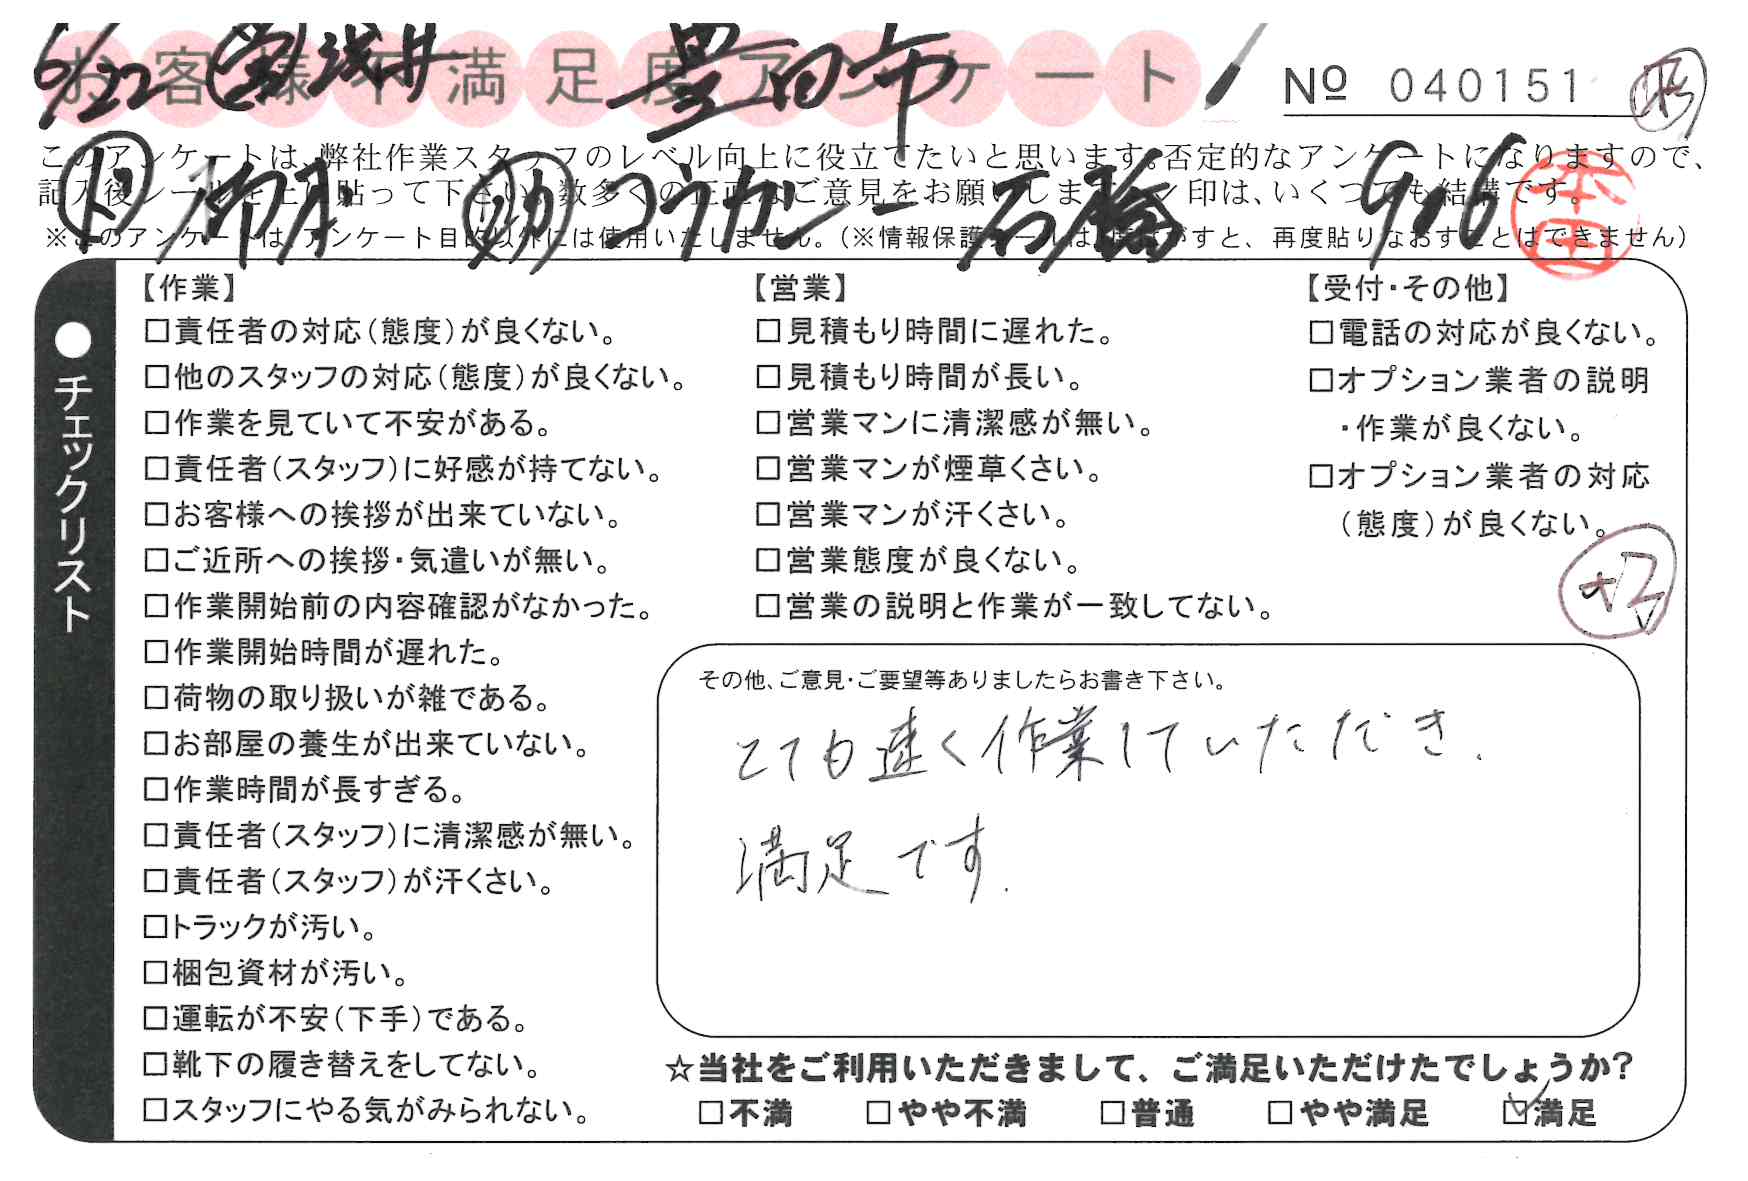 6/22 営 浅井 豊田市
お客様不満足度アンケート
№ 040151
このアンケートは、弊社作業スタッフのレベル向上に役立てたいと思います。否定的なアンケートになりますので、
記入後シールを上に貼って下さい。数多くの正直なご意見をお願いします。✓印は、いくつでも結構です。
ド 助 コウカシー 906
本田
※このアンケートは、アンケート目的以外には使用いたしません。（※情報保護シールは一度はがすと、再度貼りなおすことはできません）
●チェックリスト
【作業】
□責任者の対応（態度）が良くない。
□他のスタッフの対応（態度）が良くない。
□作業を見ていて不安がある。
□責任者（スタッフ）に好感が持てない。
□お客様への挨拶が出来ていない。
□ご近所への挨拶・気遣いが無い。
□作業開始前の内容確認がなかった。
□作業開始時間が遅れた。
□荷物の取り扱いが雑である。
□お部屋の養生が出来ていない。
□作業時間が長すぎる。
□責任者（スタッフ）に清潔感が無い。
□責任者（スタッフ）が汗くさい。
□トラックが汚い。
□梱包資材が汚い。
□運転が不安（下手）である。
□靴下の履き替えをしてない。
□スタッフにやる気がみられない。
【営業】
□見積もり時間に遅れた。
□見積もり時間が長い。
□営業マンに清潔感が無い。
□営業マンが煙草くさい。
□営業マンが汗くさい。
□営業態度が良くない。
□営業の説明と作業が一致してない。
【受付・その他】
□電話の対応が良くない。
□オプション業者の説明
・作業が良くない。
□オプション業者の対応
（態度）が良くない。
その他、ご意見・ご要望等ありましたらお書き下さい。
とても速く作業していただき、
満足です.
☆当社をご利用いただきまして、ご満足いただけたでしょうか？
□不満 □やや不満 □普通 □やや満足 ☑満足